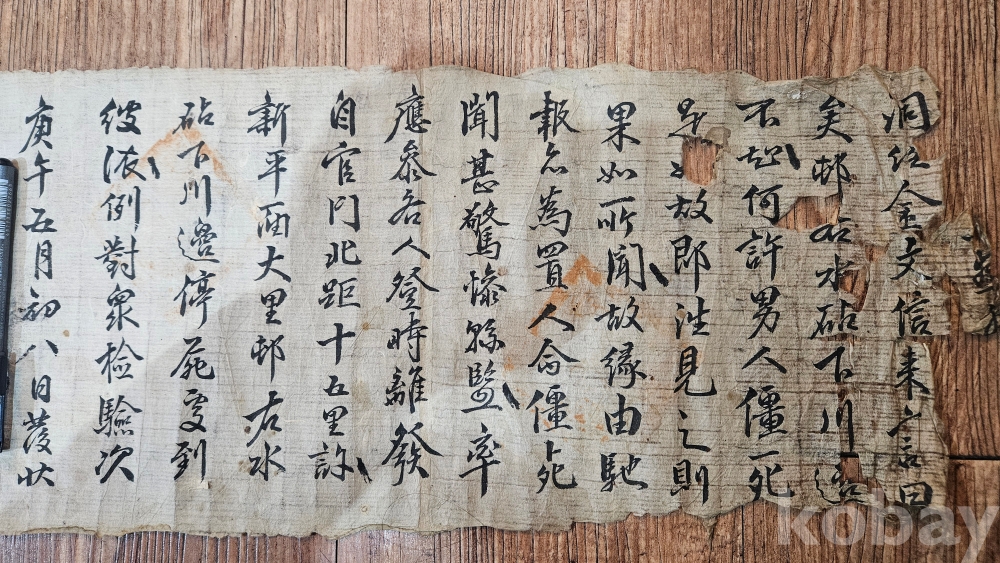 洞任金文信来言曰
矣邨右水砧下川邉
不知何許男人僵死
是之故即徃見之則
果如所聞故縁由馳
報爲置人命僵死
聞甚驚慘縣監率
應叅各人登時離發
自官门北距十五里許
新平面大里邨右水
砧下川邉停屍處到
彼依例對衆檢驗次
庚午五月初八日發状
kobay